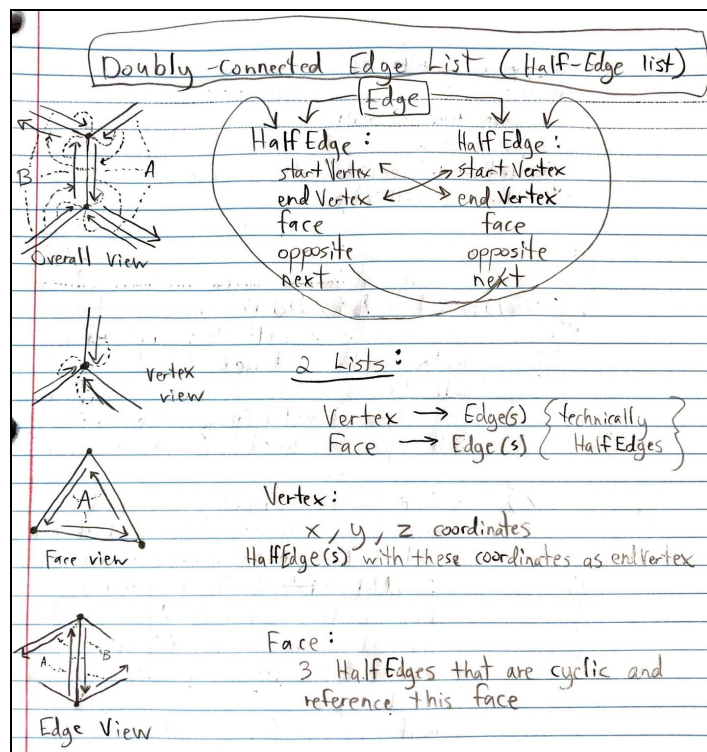 Doubly-connected Edge List (Half-Edge list)
Edge
HalfEdge:
startVertex
endVertex
face
opposite
next
HalfEdge:
startVertex
endVertex
face
opposite
next
B
A
Overall View
Vertex
view
2 Lists:
Vertex → Edge(s) { technically
Face → Edge(s) { HalfEdges }
A
Face view
Vertex:
x, y, z coordinates
HalfEdge(s) with these coordinates as endVertex
A
B
Edge View
Face:
3 HalfEdges that are cyclic and
reference this face